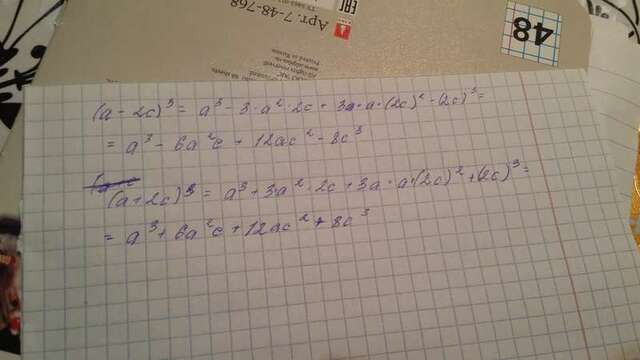 48
Арт. 7-48-768
EAC
(a - 2c)³ = a³ - 3·a²·2c + 3a·a·(2c)² - (2c)³ =
= a³ - 6a²c + 12ac² - 8c³
(a+2c)³ = a³ + 3·a²·2c + 3a·a·(2c)² + (2c)³ =
= a³ + 6a²c + 12ac² + 8c³